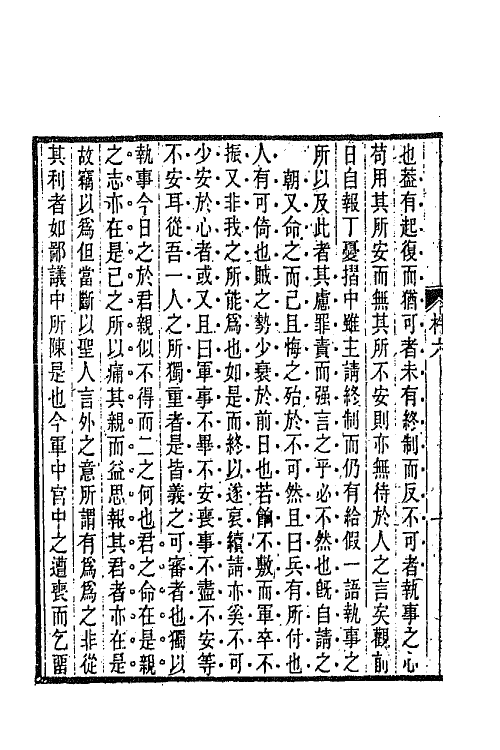 也蓋有起復而猶可者未有終制而反不可者執事之心
苟用其所安而無其所不安則亦無待於人之言矣觀前
日自報丁憂摺中雖主請終制而仍有給假一語執事之
所以及此者其慮罪責而强言之乎必不然也旣自請之
朝又命之而己且悔之殆於不可然且曰兵有所付也
人有可倚也賊之勢少衰於前日也若餉不敷而軍卒不
振又非我之所能爲也如是而終以遂哀續請亦奚不可
少安於心者或又且曰軍事不畢不安喪事不盡不安等
不安耳從吾一人之所獨重者是皆義之可審者也獨以
執事今日之於君親似不得而二之何也君之命在是親
之志亦在是己之所以痛其親而益思報其君者亦在是
故竊以爲但當斷以聖人言外之意所謂有爲爲之非從
其利者如鄙議中所陳是也今軍中官中之遭喪而乞畱
六